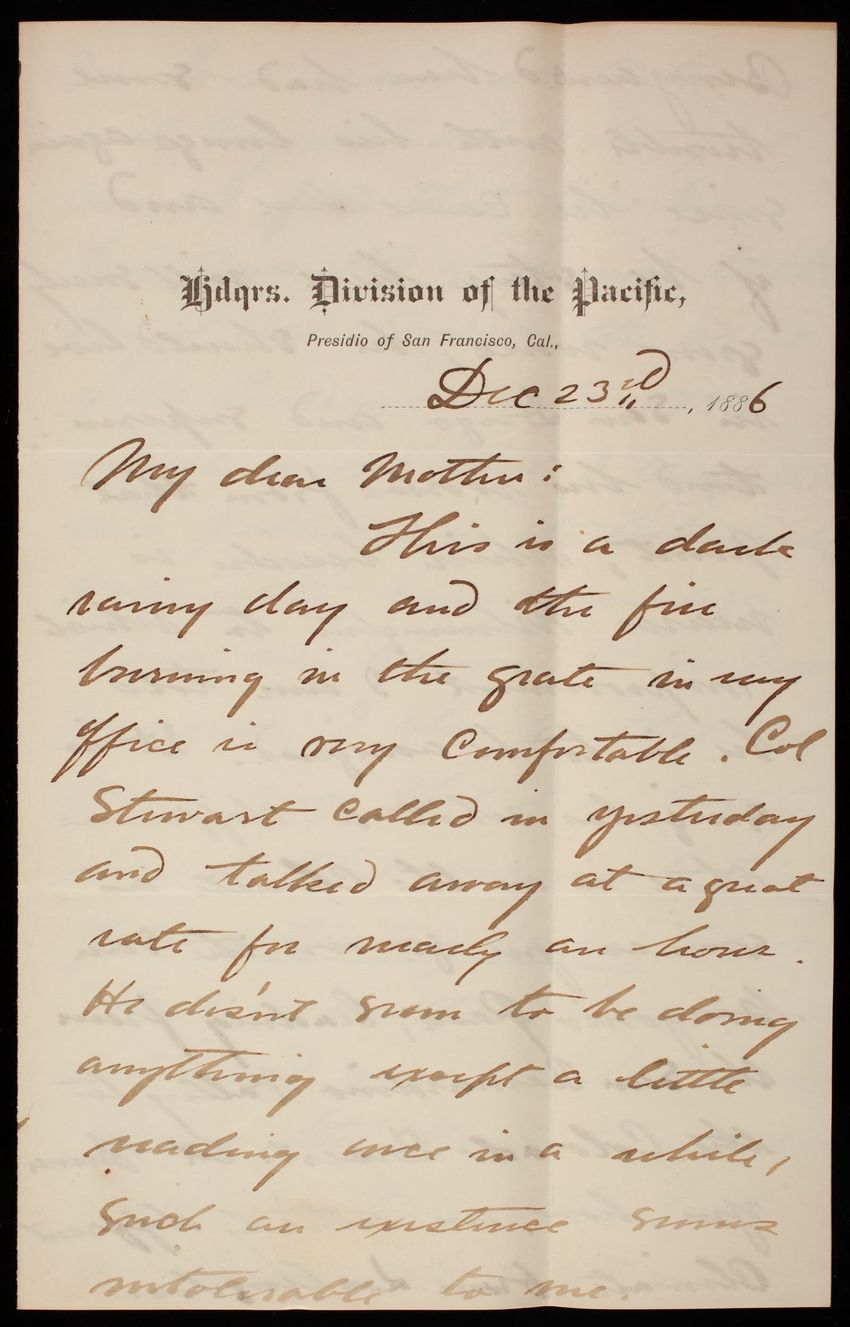 Hdqrs. Division of the Pacific,
Presidio of San Francisco, Cal.,
Dec 23rd, 1886
My dear Mother:
This is a dark
rainy day and the fire
burning in the grate in my
office is very comfortable. Col
Stewart called in yesterday
and talked away at a great
rate for nearly an hour.
He does'nt seem to be doing
anything except a little
reading once in a while,
such an existence seems
intolerable to me.